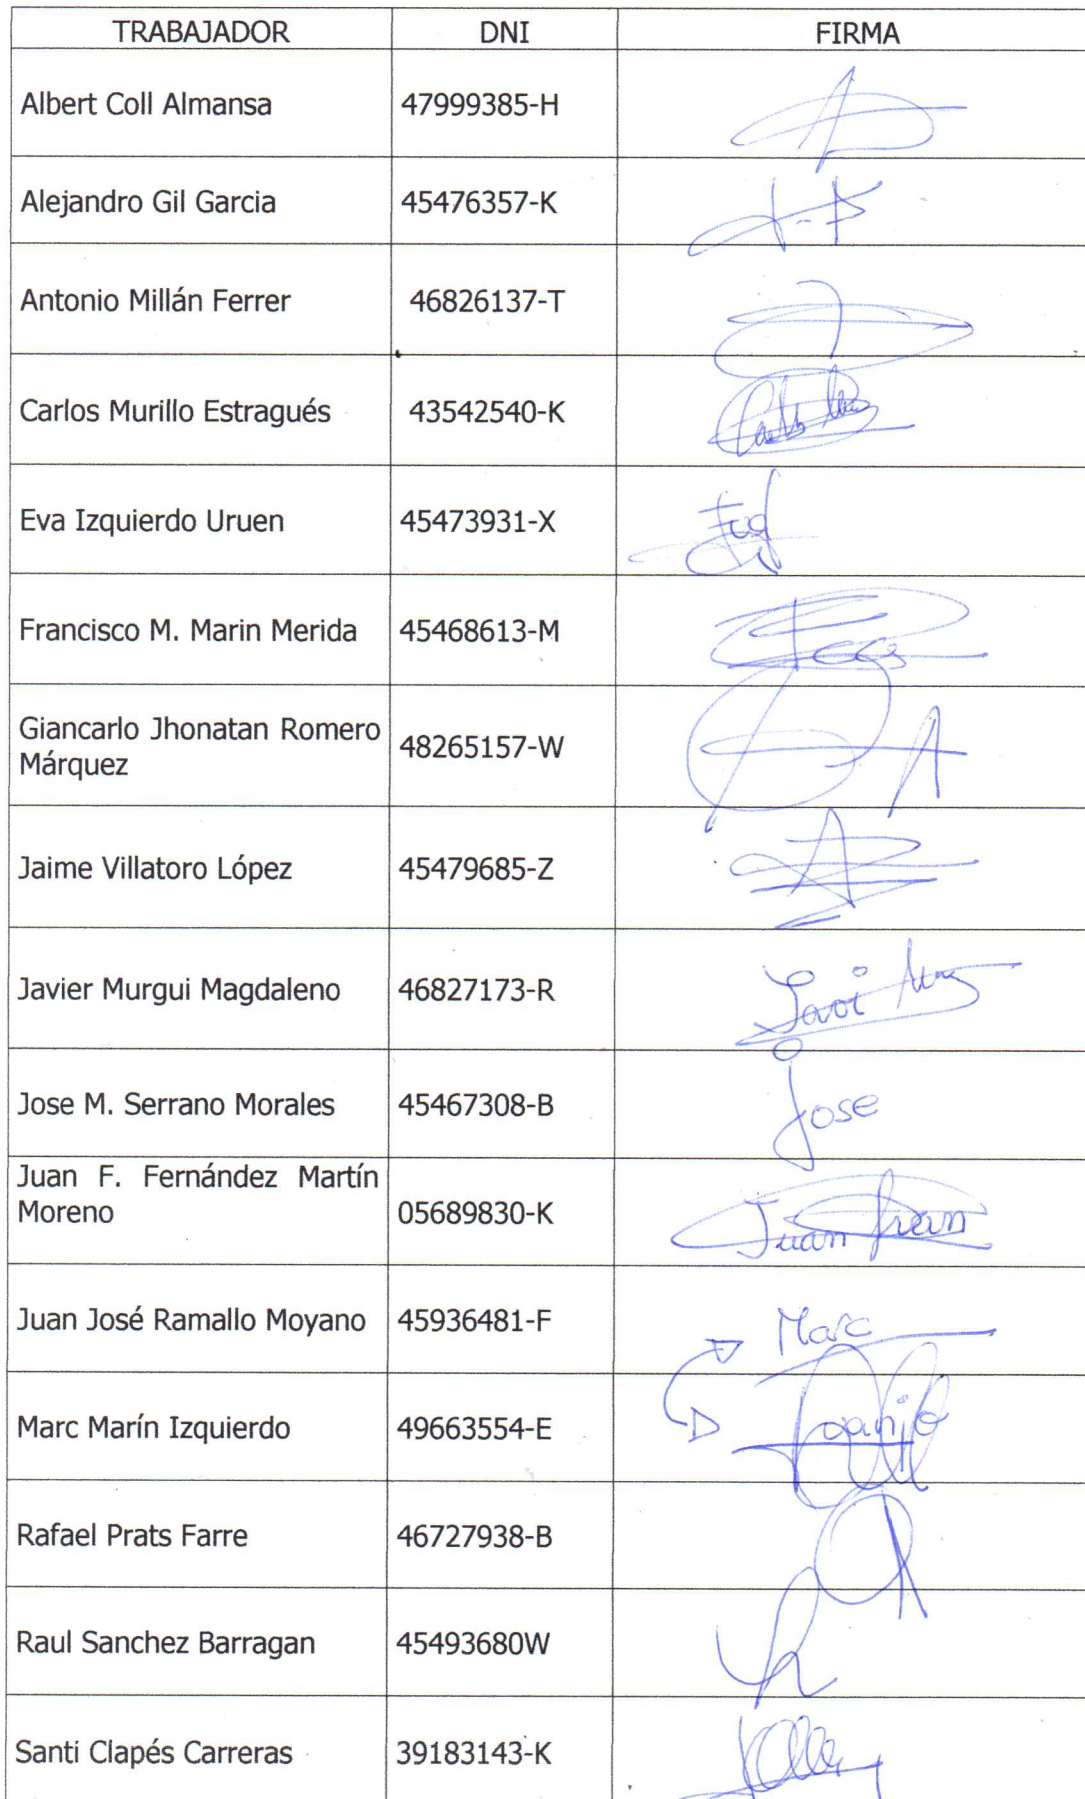 TRABAJADOR DNI FIRMA
Albert Coll Almansa 47999385-H
Alejandro Gil Garcia 45476357-K
Antonio Millán Ferrer 46826137-T
Carlos Murillo Estragués 43542540-K
Eva Izquierdo Uruen 45473931-X
Francisco M. Marin Merida 45468613-M
Giancarlo Jhonatan Romero
Márquez 48265157-W
Jaime Villatoro López 45479685-Z
Javier Murgui Magdaleno 46827173-R Javi
Jose M. Serrano Morales 45467308-B Jose
Juan F. Fernández Martín
Moreno 05689830-K Juan Fran
Juan José Ramallo Moyano 45936481-F Marc
Marc Marín Izquierdo 49663554-E Joanjo
Rafael Prats Farre 46727938-B
Raul Sanchez Barragan 45493680W
Santi Clapés Carreras 39183143-K